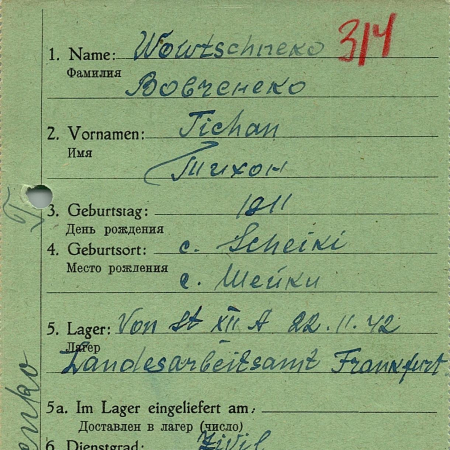 3/4
1. Name: Wowtschneko
Фамилия Вовченеко
2. Vornamen: Tichan
Имя Тихон
3. Geburtstag: 1911
День рождения
4. Geburtsort: с. Scheiki
Место рождения с. Шейки
5. Lager: Von St XII A 22.11.42
Лагер
Landesarbeitsamt Frankfurt
5a. Im Lager eingeliefert am:
Доставлен в лагер (число)
6. Dienstgrad: Zivil
enko